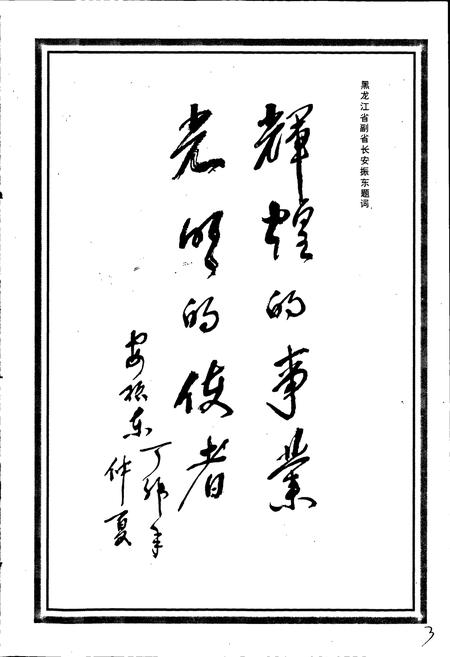 黑龙江省副省长安振东题词
輝煌的事業
光明的使者
安振东
丁卯年
仲夏
3